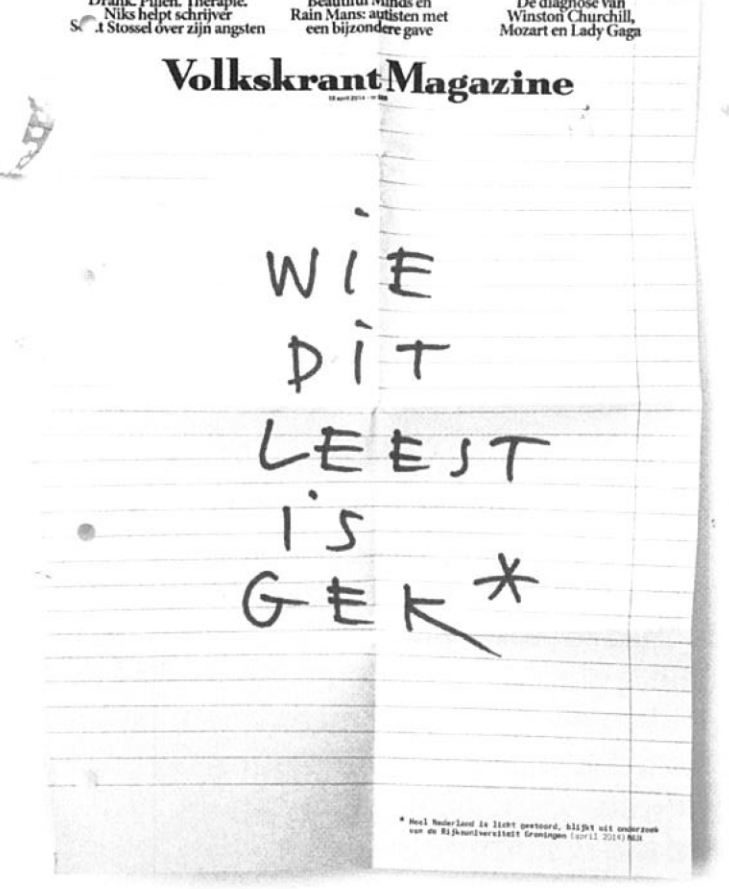 Drank. Pillen. Therapie.
Niks helpt schrijver
Stossel over zijn angsten
Beautiful Minds en
Rain Mans: autisten met
een bijzondere gave
De diagnose van
Winston Churchill,
Mozart en Lady Gaga
Volkskrant Magazine
april 2014
WIE
DIT
LEEST
IS
GEK*
* Heel Nederland is licht gestoord, blijkt uit onderzoek
van de Rijksuniversiteit Groningen (april 2014)